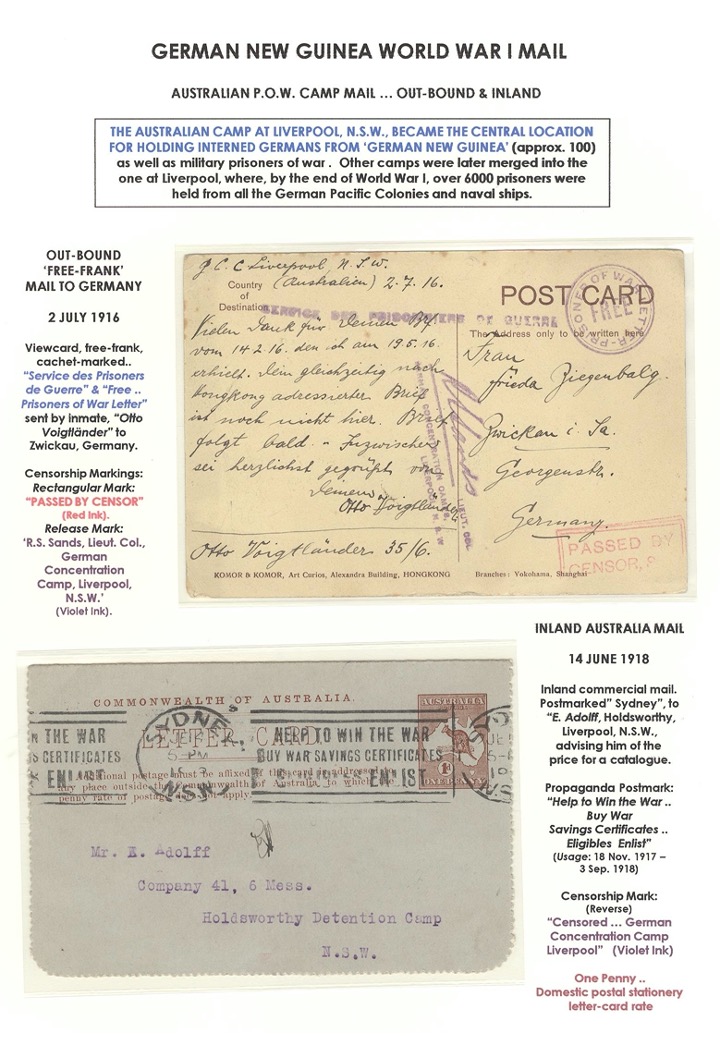 GERMAN NEW GUINEA WORLD WAR I MAIL
AUSTRALIAN P.O.W. CAMP MAIL ... OUT-BOUND & INLAND
THE AUSTRALIAN CAMP AT LIVERPOOL, N.S.W., BECAME THE CENTRAL LOCATION
FOR HOLDING INTERNED GERMANS FROM 'GERMAN NEW GUINEA' (approx. 100)
as well as military prisoners of war . Other camps were later merged into the
one at Liverpool, where, by the end of World War I, over 6000 prisoners were
held from all the German Pacific Colonies and naval ships.
OUT-BOUND
'FREE-FRANK'
MAIL TO GERMANY
2 JULY 1916
Viewcard, free-frank,
cachet-marked..
"Service des Prisoners
de Guerre" & "Free ..
Prisoners of War Letter"
sent by inmate, "Otto
Voigtländer" to
Zwickau, Germany.
Censorship Markings:
Rectangular Mark:
"PASSED BY CENSOR"
(Red Ink).
Release Mark:
'R.S. Sands, Lieut. Col.,
German
Concentration
Camp, Liverpool,
N.S.W.'
(Violet Ink).
C. C Liverpool, N. S. W.
(Australien) 2. 7. 16.
Country
of
Destination
SERVICE DES PRISONNIERS DE GUERRE
Vielen Dank für Deinen Brf.
vom 14.2.16. den ich am 19.5.16.
erhielt. Dein gleichzeitig nach
Hongkong adressierter Brief
ist noch nicht hier. Brief
folgt bald. Inzwischen
sei herzlichst gegrüßt von
Deinem
Otto Voigtländer
Otto Voigtländer 35/6.
POST CARD
PRISONER OF WAR LETTER
FREE
The Address only to be written here
Frau
Frieda Ziegenbalg.
Zwickau i. Sa.
Georgenstr.
Germany.
LIEUT. COL.
GERMAN CONCENTRATION CAMPS,
LIVERPOOL, N. S. W
PASSED BY
CENSOR,
KOMOR & KOMOR, Art Curios, Alexandra Building, HONGKONG
Branches: Yokohama, Shanghai
INLAND AUSTRALIA MAIL
14 JUNE 1918
Inland commercial mail.
Postmarked" Sydney", to
"E. Adolff, Holdsworthy,
Liverpool, N.S.W.,
advising him of the
price for a catalogue.
Propaganda Postmark:
"Help to Win the War ..
Buy War
Savings Certificates ..
Eligibles Enlist"
(Usage: 18 Nov. 1917 –
3 Sep. 1918)
Censorship Mark:
(Reverse)
"Censored ... German
Concentration Camp
Liverpool" (Violet Ink)
One Penny ..
Domestic postal stationery
letter-card rate
COMMONWEALTH OF AUSTRALIA.
LETTER CARD.
AUSTRALIA
1d
ONE PENNY
N THE WAR
S CERTIFICATES
ENLIST
SYDNEY
5-PM
N.S.W.
HELP TO WIN THE WAR
BUY WAR SAVINGS CERTIFICATES
ENLIST
Additional postage must be affixed if this card is addressed to
any place outside the Commonwealth of Australia to which the
penny rate of postage does not apply.
Mr. E. Adolff
Company 41, 6 Mess.
Holdsworthy Detention Camp
N.S.W.